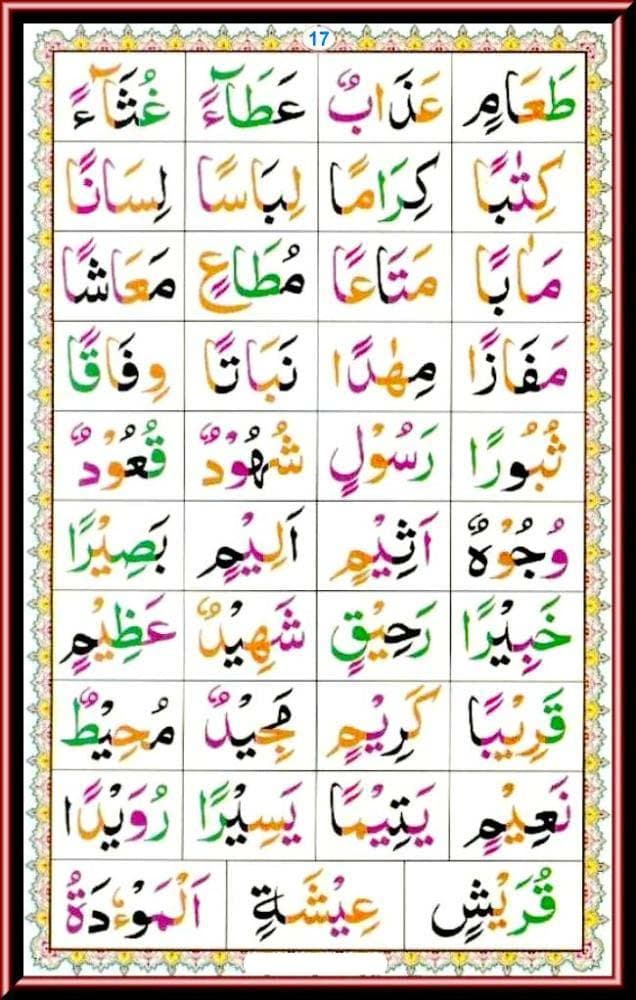 17
طَعَامٍ عَذَابٌ عَطَآءً غُثَآءً
كِتٰبًا كِرَامًا لِبَاسًا لِسَانًا
مَاٰبًا مَتَاعًا مُطَاعٍ مَعَاشًا
مَفَازًا مِهٰدًا نَبَاتًا وِفَاقًا
ثُبُورًا رَسُوْلٍ شُهُوْدٌ قُعُوْدٌ
وُجُوْهٌ اَثِيْمٍ اَلِيْمٍ بَصِيْرًا
خَبِيْرًا رَحِيْقٍ شَهِيْدٌ عَظِيْمٍ
قَرِيْبًا كَرِيْمٍ مَّجِيْدٌ مُحِيْطٌ
نَعِيْمٍ يَتِيْمًا يَسِيْرًا رُوَيْدًا
قُرَيْشٍ عِيْشَةٍ اَلْمَوْءٗدَةُ